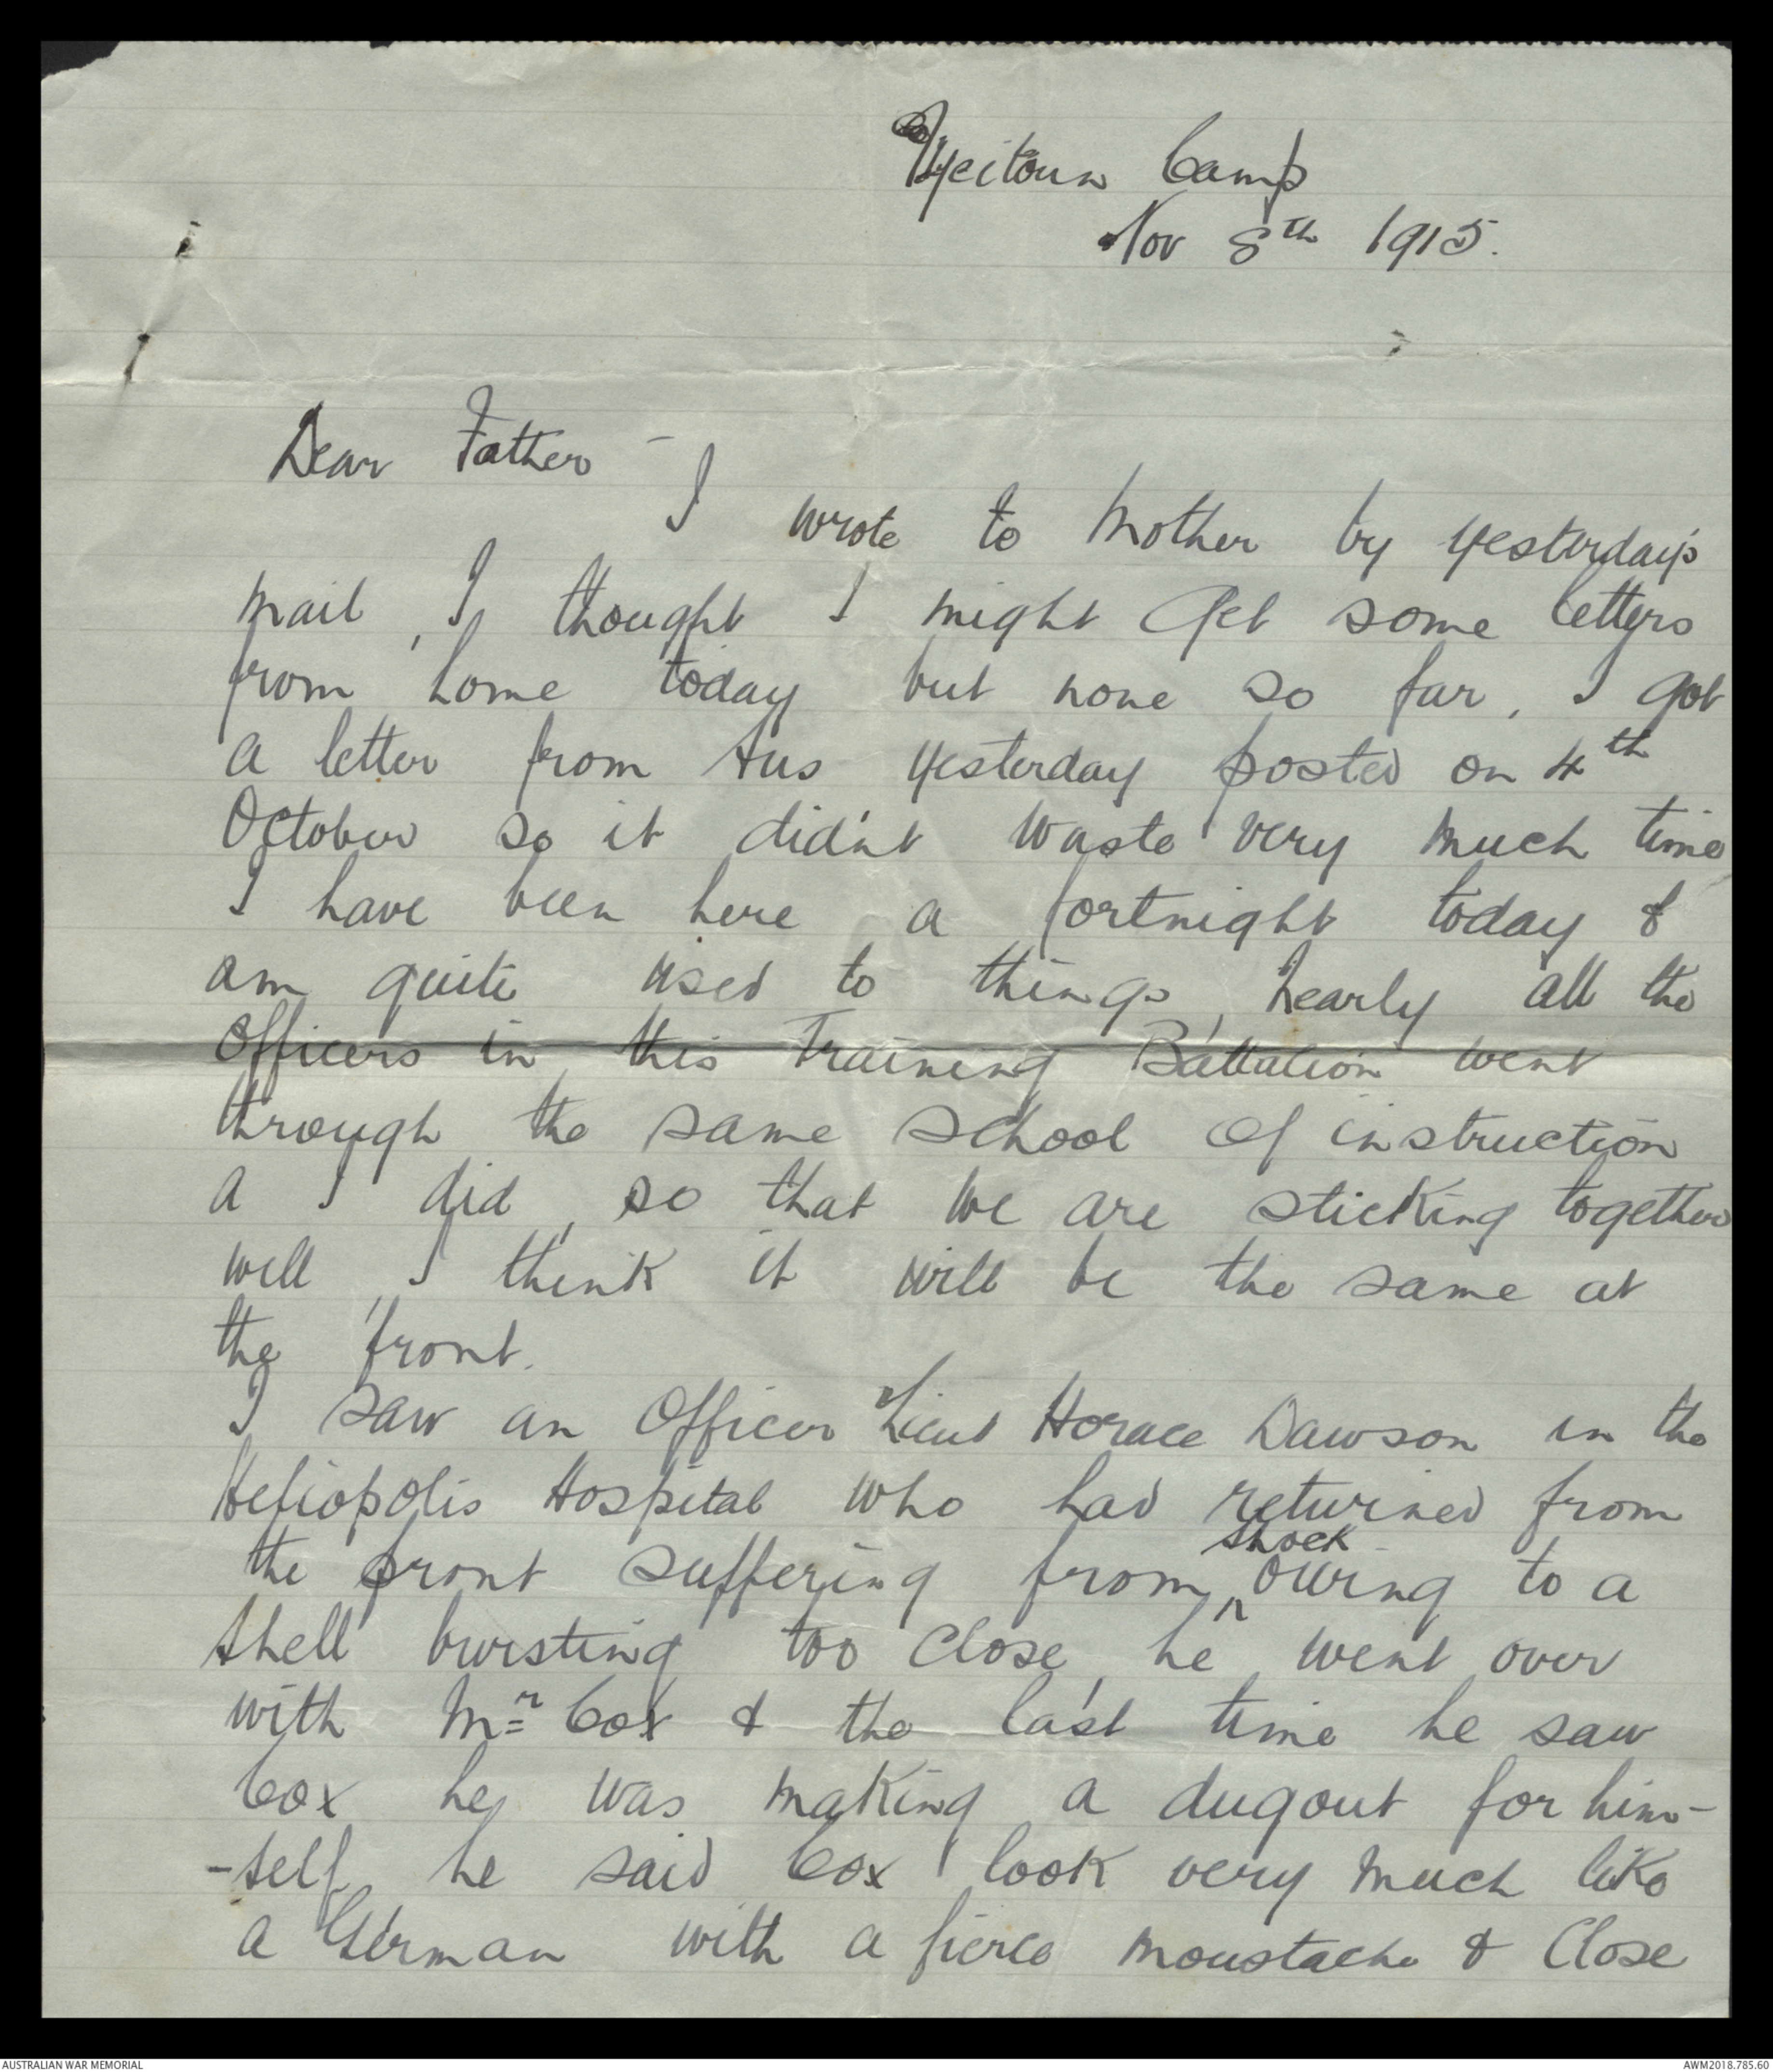 Zeitoun Camp
Nov 8th 1915.
Dear Father -
I wrote to Mother by yesterday's
mail, I thought I might get some letters
from home today but none so far, I got
a letter from Aus yesterday posted on 4th
October so it didn't waste very much time
I have been here a fortnight today &
am quite used to things, nearly all the
Officers in this Training Battalion went
through the same school of instruction
a I did, so that we are sticking together
well, I think it will be the same at
the front.
I saw an Officer Lieut Horace Dawson in the
Heliopolis Hospital who had returned from
the front suffering from shock owing to a
shell bursting too close, he went over
with Mr Cox & the last time he saw
Cox he was making a dugout for him-
-self, he said Cox look very much like
a German with a fierce moustache & Close
AUSTRALIAN WAR MEMORIAL
AWM2018.785.60